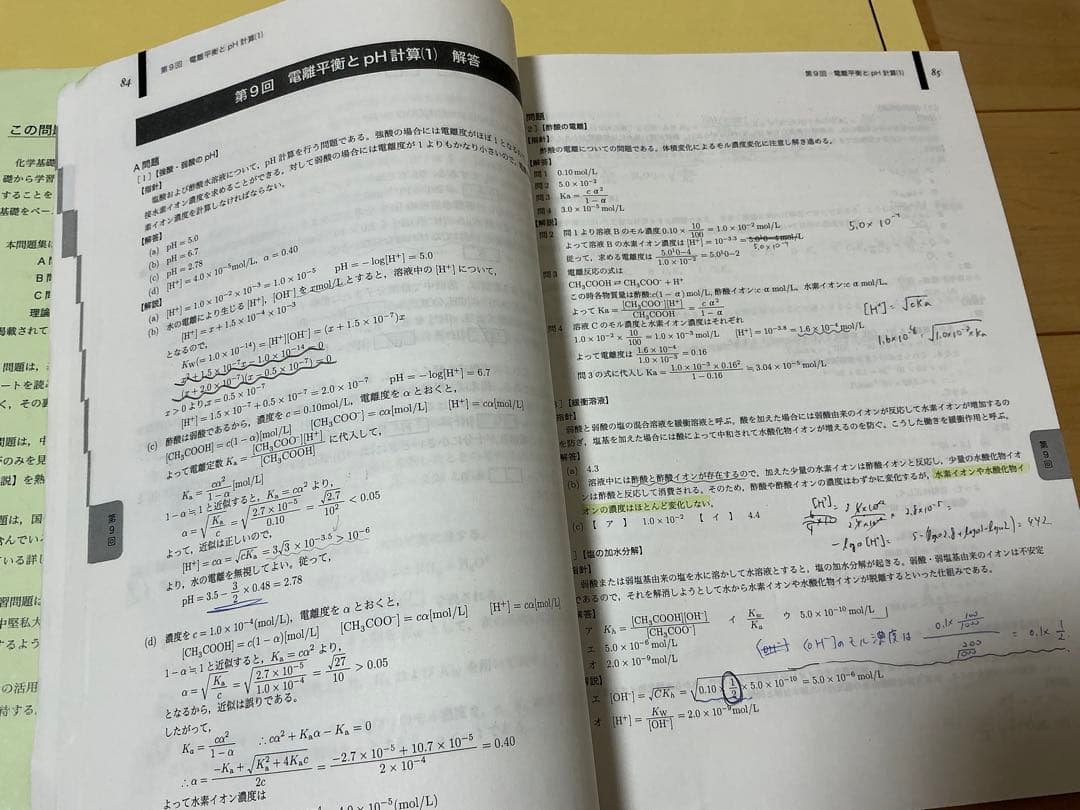 この問題
化学基礎
礎から学習
することを
基礎をベー
本問題集は
A問
B問
C問
理論
掲載されて
問題は、
ートを読み
く，その
問題は、中
がのみを見
説】を熟
題は、国
含んでいる
いる詳し
習問題は
中堅私大
するよう
の活用
待する．
84
第9回 電離平衡とpH計算(1)
第9回 電離平衡とpH計算(1) 解答
A問題
[1]【強酸・弱酸のpH】
【指針】
塩酸および酢酸水溶液について，pH計算を行う問題である．強酸の場合には電離度がほぼ1となる
接水素イオン濃度を求めることができる．対して弱酸の場合には電離度が1よりもかなり小さいので，
素イオン濃度を計算しなければならない．
【解答】
(a) pH = 5.0
(b) pH = 6.7
(c) pH = 2.78
(d) [H⁺] = 4.0 × 10⁻⁵mol/L, α = 0.40
【解説】
(a) [H⁺] = 1.0 × 10⁻² × 10⁻³ = 1.0 × 10⁻⁵ pH = −log[H⁺] = 5.0
(b) 水の電離により生じる[H⁺]，[OH⁻]をxmol/Lとすると，溶液中の[H⁺]について，
[H⁺] = x + 1.5 × 10⁻⁴ × 10⁻³
となるので，
Kw(= 1.0 × 10⁻¹⁴) = [H⁺][OH⁻] = (x + 1.5 × 10⁻⁷)x
x² + 1.5 × 10⁻⁷x − 1.0 × 10⁻¹⁴ = 0
(x + 2.0 × 10⁻⁷)(x − 0.5 × 10⁻⁷) = 0
x > 0よりx = 0.5 × 10⁻⁷
[H⁺] = 1.5 × 10⁻⁷ + 0.5 × 10⁻⁷ = 2.0 × 10⁻⁷ pH = −log[H⁺] = 6.7
(c) 酢酸は弱酸であるから，濃度をc = 0.10mol/L，電離度をαとおくと，
[CH₃COOH] = c(1 − α)[mol/L] [CH₃COO⁻] = cα[mol/L] [H⁺] = cα[mol/L]
よって電離定数Kₐ = [CH₃COO⁻][H⁺]/[CH₃COOH] に代入して，
Kₐ = cα²/(1 − α) [mol/L]
1 − α ≒ 1と近似すると，Kₐ = cα²より，
α = √(Kₐ/c) = √(2.7 × 10⁻⁵/0.10) = √2.7/10² < 0.05
よって，近似は正しいので，
[H⁺] = cα = √cKₐ = 3√3 × 10⁻³·⁵ > 10⁻⁶
より，水の電離を無視してよい．従って，
pH = 3.5 − 3/2 × 0.48 = 2.78
(d) 濃度をc = 1.0 × 10⁻⁴(mol/L)，電離度をαとおくと，
[CH₃COOH] = c(1 − α)[mol/L] [CH₃COO⁻] = cα[mol/L] [H⁺] = cα[mol/L]
1 − α ≒ 1と近似すると，Kₐ = cα²より，
α = √(Kₐ/c) = √(2.7 × 10⁻⁵/1.0 × 10⁻⁴) = √27/10 > 0.05
となるから，近似は誤りである．
したがって，
Kₐ = cα²/(1 − α) ∴cα² + Kₐα − Kₐ = 0
∴α = (−Kₐ + √(Kₐ² + 4Kₐc))/2c = (−2.7 × 10⁻⁵ + 10.7 × 10⁻⁵)/(2 × 10⁻⁴) = 0.40
よって水素イオン濃度は
第9回
第9回 電離平衡とpH計算(1)
85
問題
2]【酢酸の電離】
指針】
酢酸の電離についての問題である．体積変化によるモル濃度変化に注意し解き進める．
【解答】
問1 0.10mol/L
問2 5.0 × 10⁻²
問3 Ka = cα²/(1 − α)
問4 3.0 × 10⁻⁵mol/L
【解説】
問2 問1より溶液Bのモル濃度0.10 × 10/100 = 1.0 × 10⁻² mol/L
よって溶液Bの水素イオン濃度は[H⁺] = 10⁻³·³ = 5.0¹0−4 mol/L
5.0 × 10⁻²
従って，求める電離度は 5.0¹0−4/1.0 × 10⁻² = 5.0¹0−2
問3 電離反応の式は
CH₃COOH ⇌ CH₃COO⁻ + H⁺
この時各物質量は酢酸:c(1 − α) mol/L, 酢酸イオン:c α mol/L，水素イオン:c α mol/L，
よってKa = [CH₃COO⁻][H⁺]/CH₃COOH = cα²/(1 − α)
[H⁺] = √cKa
問4 溶液Cのモル濃度と水素イオン濃度はそれぞれ
1.0 × 10⁻² × 10/100 = 1.0 × 10⁻³ mol/L [H⁺] = 10⁻³·⁸ = 1.6 × 10⁻⁴ mol/L
よって電離度は 1.6 × 10⁻⁴/1.0 × 10⁻³ = 0.16
問3の式に代入しKa = 1.0 × 10⁻³ × 0.16²/(1 − 0.16) = 3.04 × 10⁻⁵ mol/L
]【緩衝溶液】
指針】
弱酸と弱酸の塩の混合溶液を緩衝溶液と呼ぶ．酸を加えた場合には弱酸由来のイオンが反応して水素イオンが増加するの
を防ぎ，塩基を加えた場合には酸によって中和されて水酸化物イオンが増えるのを防ぐ．こうした働きを緩衝作用と呼ぶ．
解答】
(a) 4.3
(b) 溶液中には酢酸と酢酸イオンが存在するので，加えた少量の水素イオンは酢酸イオンと反応し，少量の水酸化物イオ
ンは酢酸と反応して消費される．そのため，酢酸や酢酸イオンの濃度はわずかに変化するが，水素イオンや水酸化物イ
オンの濃度はほとんど変化しない．
(c)【ア】 1.0 × 10⁻² 【イ】 4.4
[H⁺] =
]【塩の加水分解】
指針】
弱酸または弱塩基由来の塩を水に溶かして水溶液とすると，塩の加水分解が起きる．弱酸・弱塩基由来のイオンは不安定
であるので，それを解消しようとして水から水素イオンや水酸化物イオンが脱離するといった仕組みである．
解答】
ア Kₕ = [CH₃COOH][OH⁻]/[CH₃COO⁻] イ Kw/Kₐ ウ 5.0 × 10⁻¹⁰ mol/L
エ 5.0 × 10⁻⁶ mol/L
オ 2.0 × 10⁻⁹ mol/L
[OH⁻]のモル濃度は
= 0.1× 1/2
解説】
エ [OH⁻] = √CKₕ = √(0.10 × 1/2 × 5.0 × 10⁻¹⁰) = 5.0 × 10⁻⁶ mol/L
オ [H⁺] = Kw/[OH⁻] = 2.0 × 10⁻⁹ mol/L
第9回